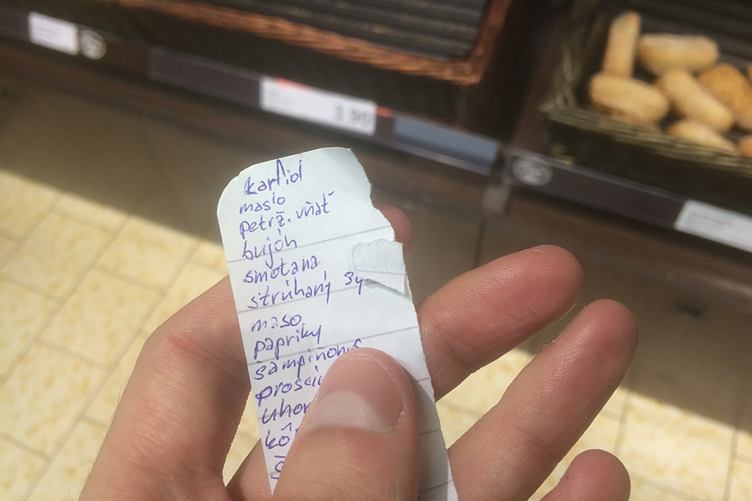 3.90
karfiol
maslo
petrž. vňať
bujón
smotana
strúhaný sy
maso
papriky
šampiňóny
prosci
uhor
kô
š